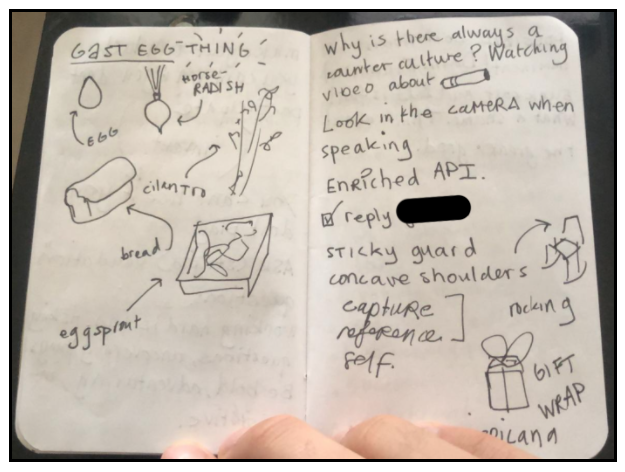 GAST EGG-THING
HORSE-
RADISH
EGG
cilantro
bread
eggsprout
why is there always a
counter culture? Watching
video about
Look in the caMERA when
speaking
Enriched API.
reply
sticky guard
concave shoulders
rocking
capture
reference
self.
GIFT
WRAP